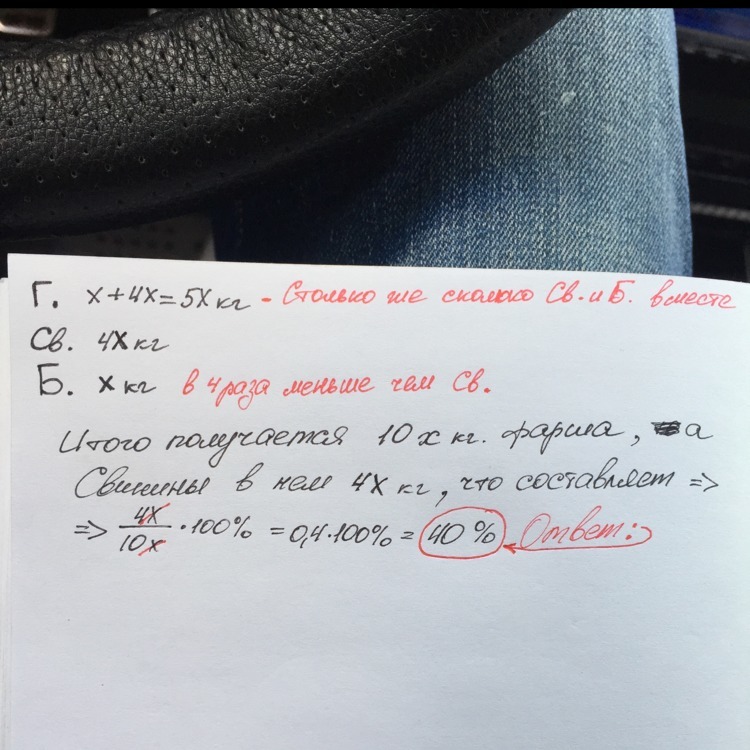 Г. х+4х=5х кг - Столько же сколько Св. и Б. вместе
Св. 4х кг
Б. х кг в 4 раза меньше чем Св.
Итого получается 10х кг. фарша, а
Свинины в нем 4х кг, что составляет =>
=> 4х/10х · 100% = 0,4·100% = 40% Ответ: